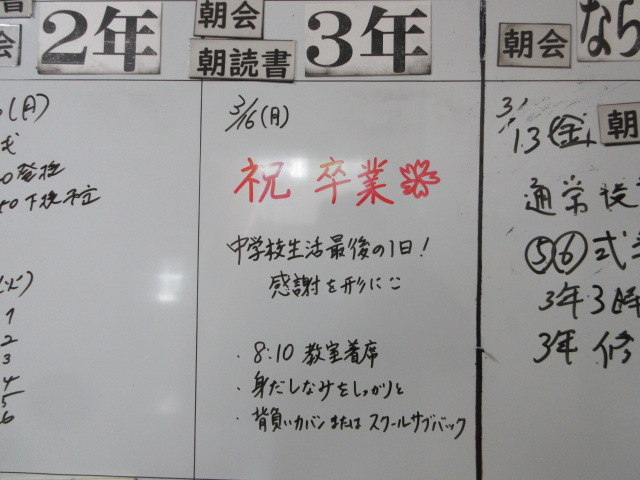 2年
朝会
朝読書
3年
朝会
なら
(月)
登校
3/16(月)
祝 卒業
中学校生活最後の1日!
感謝を形に
・8:10 教室着席
・身だしなみをしっかりと
・背負いカバンまたはスクールサブバック
1
2
3
4
5
6
3/13(金)
朝
通常授
⑤⑥式
3年3時
3年 修